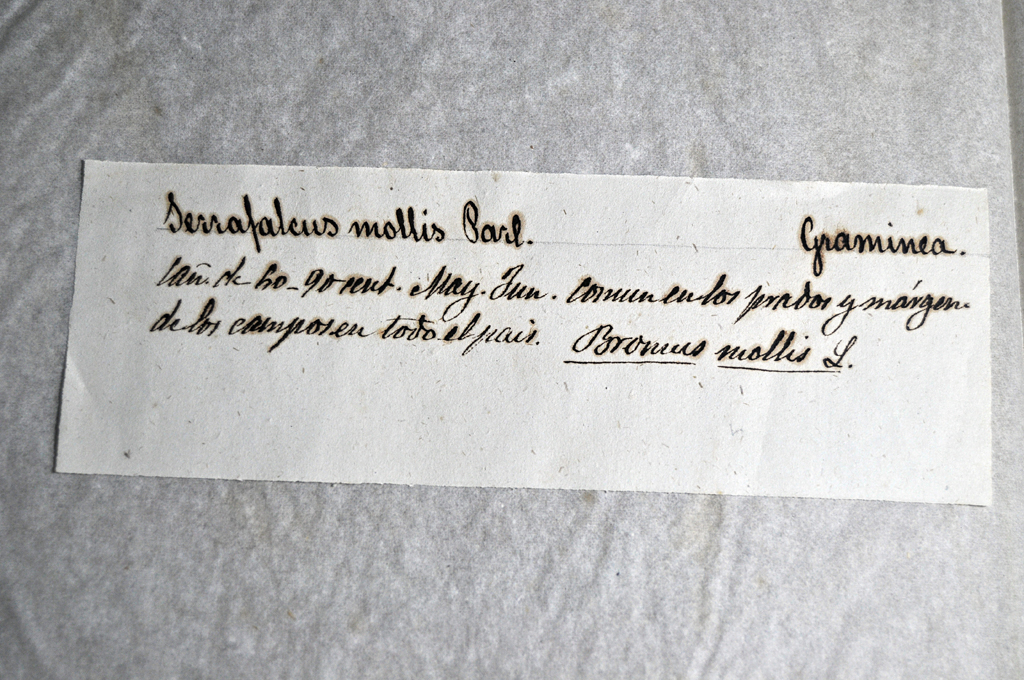 Serrafalcus mollis Parl. Graminea.
Cañ. de 60-90 cent. May. Jun. comun en los prados y márgen.
de los campos en todo el pais. Bromus mollis L.